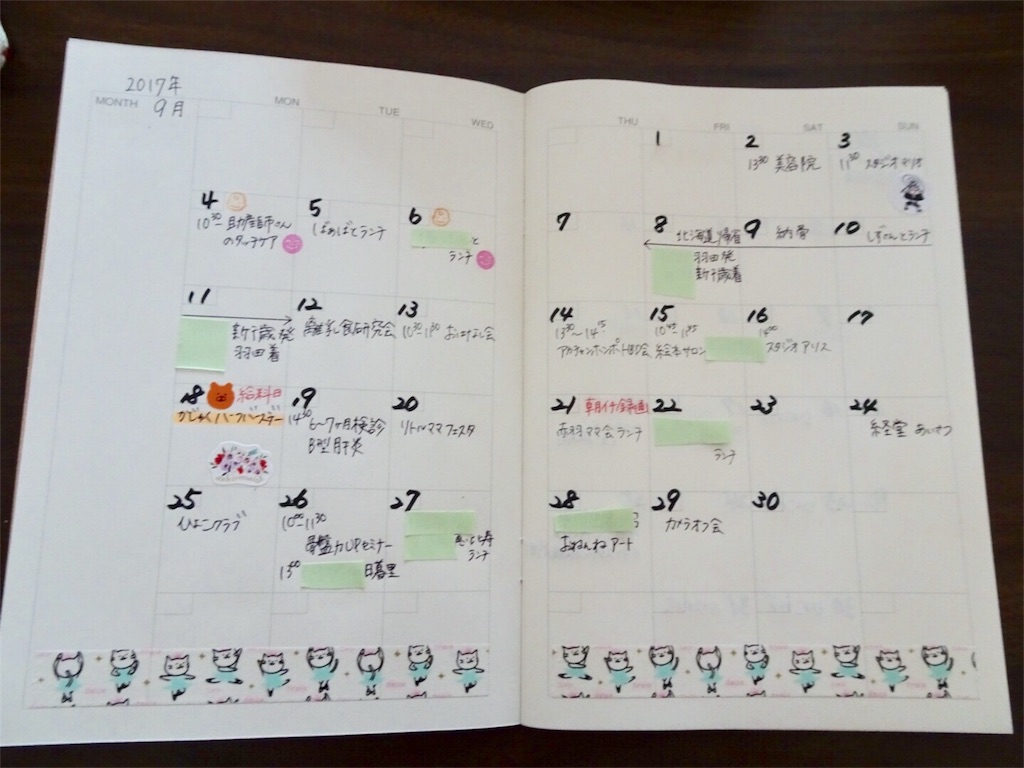 2017年
MONTH 9月
MON TUE WED THU FRI SAT SUN
1
2
13:30 美容院
3
11:30 スタジオマリオ
4
10:30〜助産師さん
のタッチケア
5
ばぁばとランチ
6
と
ランチ
7
8
北海道帰省
羽田発
新千歳着
9
納骨
10
しずさんとランチ
11
新千歳発
羽田着
12
離乳食研究会
13
10:30〜11:30 おはなし会
14
13:30〜14:15
アカチャンホンポ
15
10:45〜11:35
絵本サロン
16
14:00
スタジオアリス
17
18
給料日
ハーフバースデー
19
14:30
6〜7ヶ月検診
B型肝炎
20
リトルママフェスタ
21
赤羽ママ会ランチ
22
ランチ
23
24
あいさつ
25
ひよこクラブ
26
10:00〜11:30
骨盤力UPセミナー
13:00
日暮里
27
ランチ
28
おねんねアート
29
カメラオフ会
30